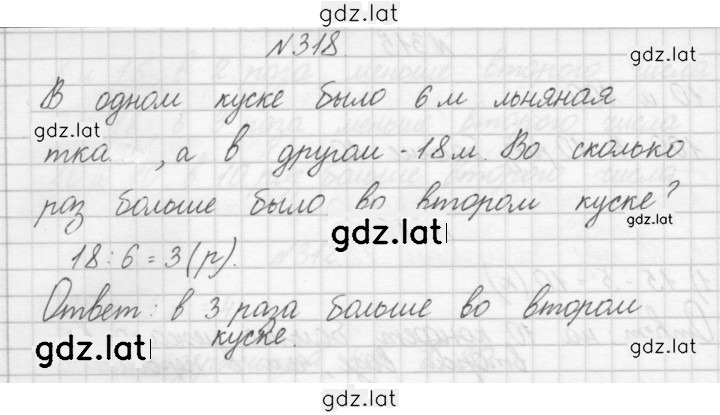 gdz.lat
№318.
gdz.lat
В одном куске было 6 м льняная
gdz.lat
тка , а в другом - 18 м. Во сколько
раз больше было во втором куске?
gdz.lat
gdz.lat
18 : 6 = 3 (р).
Ответ: в 3 раза больше во втором
куске.
gdz.lat
gdz.lat
gdz.lat